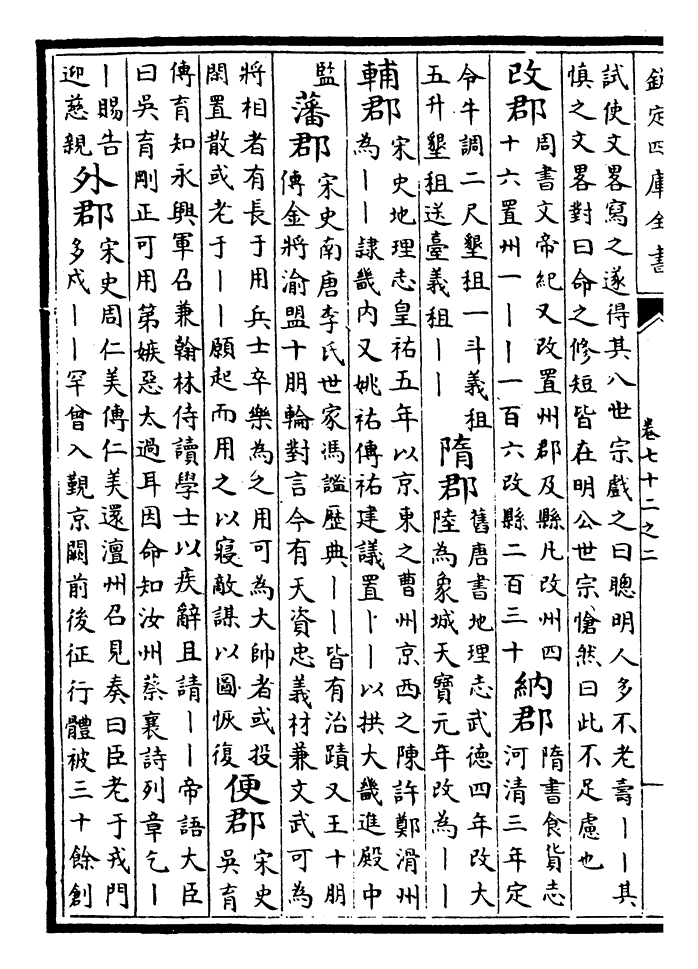 欽定四庫全書
卷七十二之二
試使文畧寫之遂得其八世宗戲之曰聰明人多不老壽丨丨其
慎之文畧對曰命之修短皆在明公世宗愴然曰此不足慮也
改郡
周書文帝紀又改置州郡及縣凡改州四
十六置州一丨丨一百六改縣二百三十
納郡
隋書食貨志
河清三年定
令牛調二尺墾租一斗義租
五升墾租送臺義租丨丨
隋郡
舊唐書地理志武德四年改大
陸為象城天寶元年改為丨丨
輔郡
宋史地理志皇祐五年以京東之曹州京西之陳許鄭滑州
為丨丨隸畿内又姚祐傳祐建議置丨丨以拱大畿進殿中
監
藩郡
宋史南唐李氏世家馮謐歷典丨丨皆有治蹟又王十朋
傳金將渝盟十朋輪對言今有天資忠義材兼文武可為
將相者有長于用兵士卒樂為之用可為大帥者或投
閑置散或老于丨丨願起而用之以寢敵謀以圖恢復
便郡
宋史
吳育
傳育知永興軍召兼翰林侍讀學士以疾辭且請丨丨帝語大臣
曰吳育剛正可用第嫉惡太過耳因命知汝州蔡襄詩列章乞丨
丨賜告
迎慈親
外郡
宋史周仁美傳仁美還澶州召見奏曰臣老于戎門
多戍丨丨罕曾入覲京闕前後征行體被三十餘創